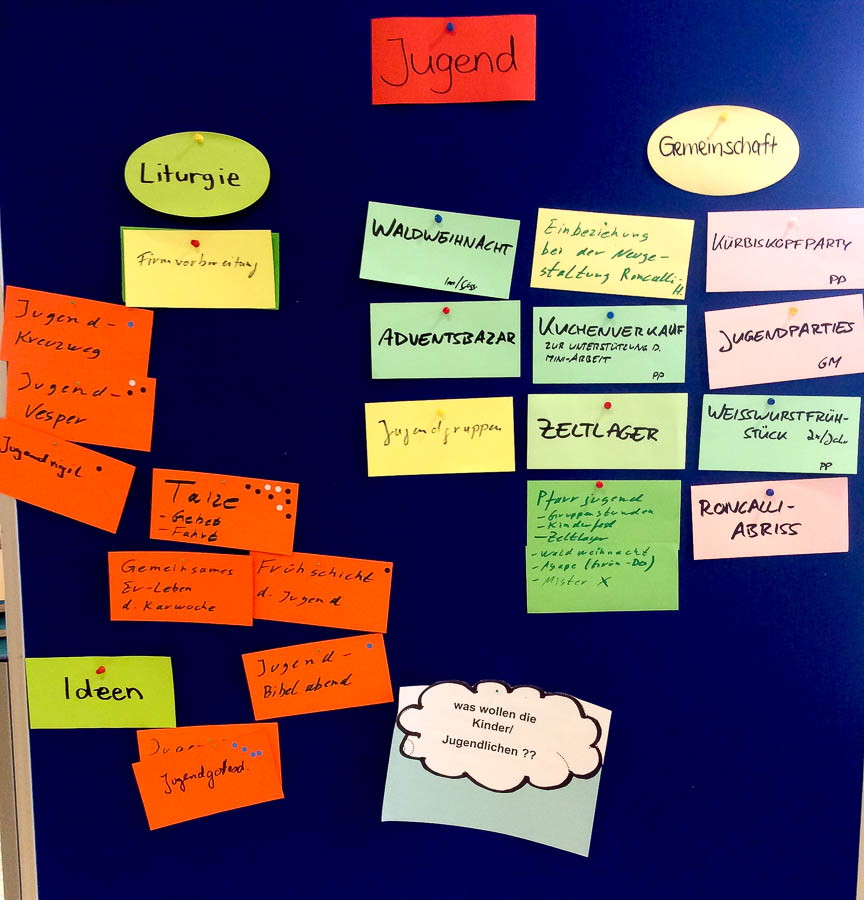 Jugend
Liturgie
Firmvorbereitung
Jugend-
Kreuzweg
Jugend-
Vesper
Jugendvigil
Taize
- Gebet
- Fahrt
Gemeinsames
Er-Leben
d. Karwoche
Frühschicht
d. Jugend
Jugend-
Bibelabend
Ideen
Jugendgottesd.
Gemeinschaft
WALDWEIHNACHT
ADVENTSBAZAR
Jugendgruppen
Einbeziehung
bei der Neuge-
staltung Roncalli-
H.
KUCHENVERKAUF
ZUR UNTERSTÜTZUNG D.
MINI-ARBEIT
PP
ZELTLAGER
Pfarrjugend
- Gruppenstunden
- Kinderfest
- Zeltlager
- Waldweihnacht
- Agape (Grün-Do)
- Mister X
KÜRBISKOPFPARTY
PP
JUGENDPARTIES
GM
WEISSWURSTFRÜH-
STÜCK 2x/Jahr
PP
RONCALLI-
ABRISS
was wollen die
Kinder/
Jugendlichen ??